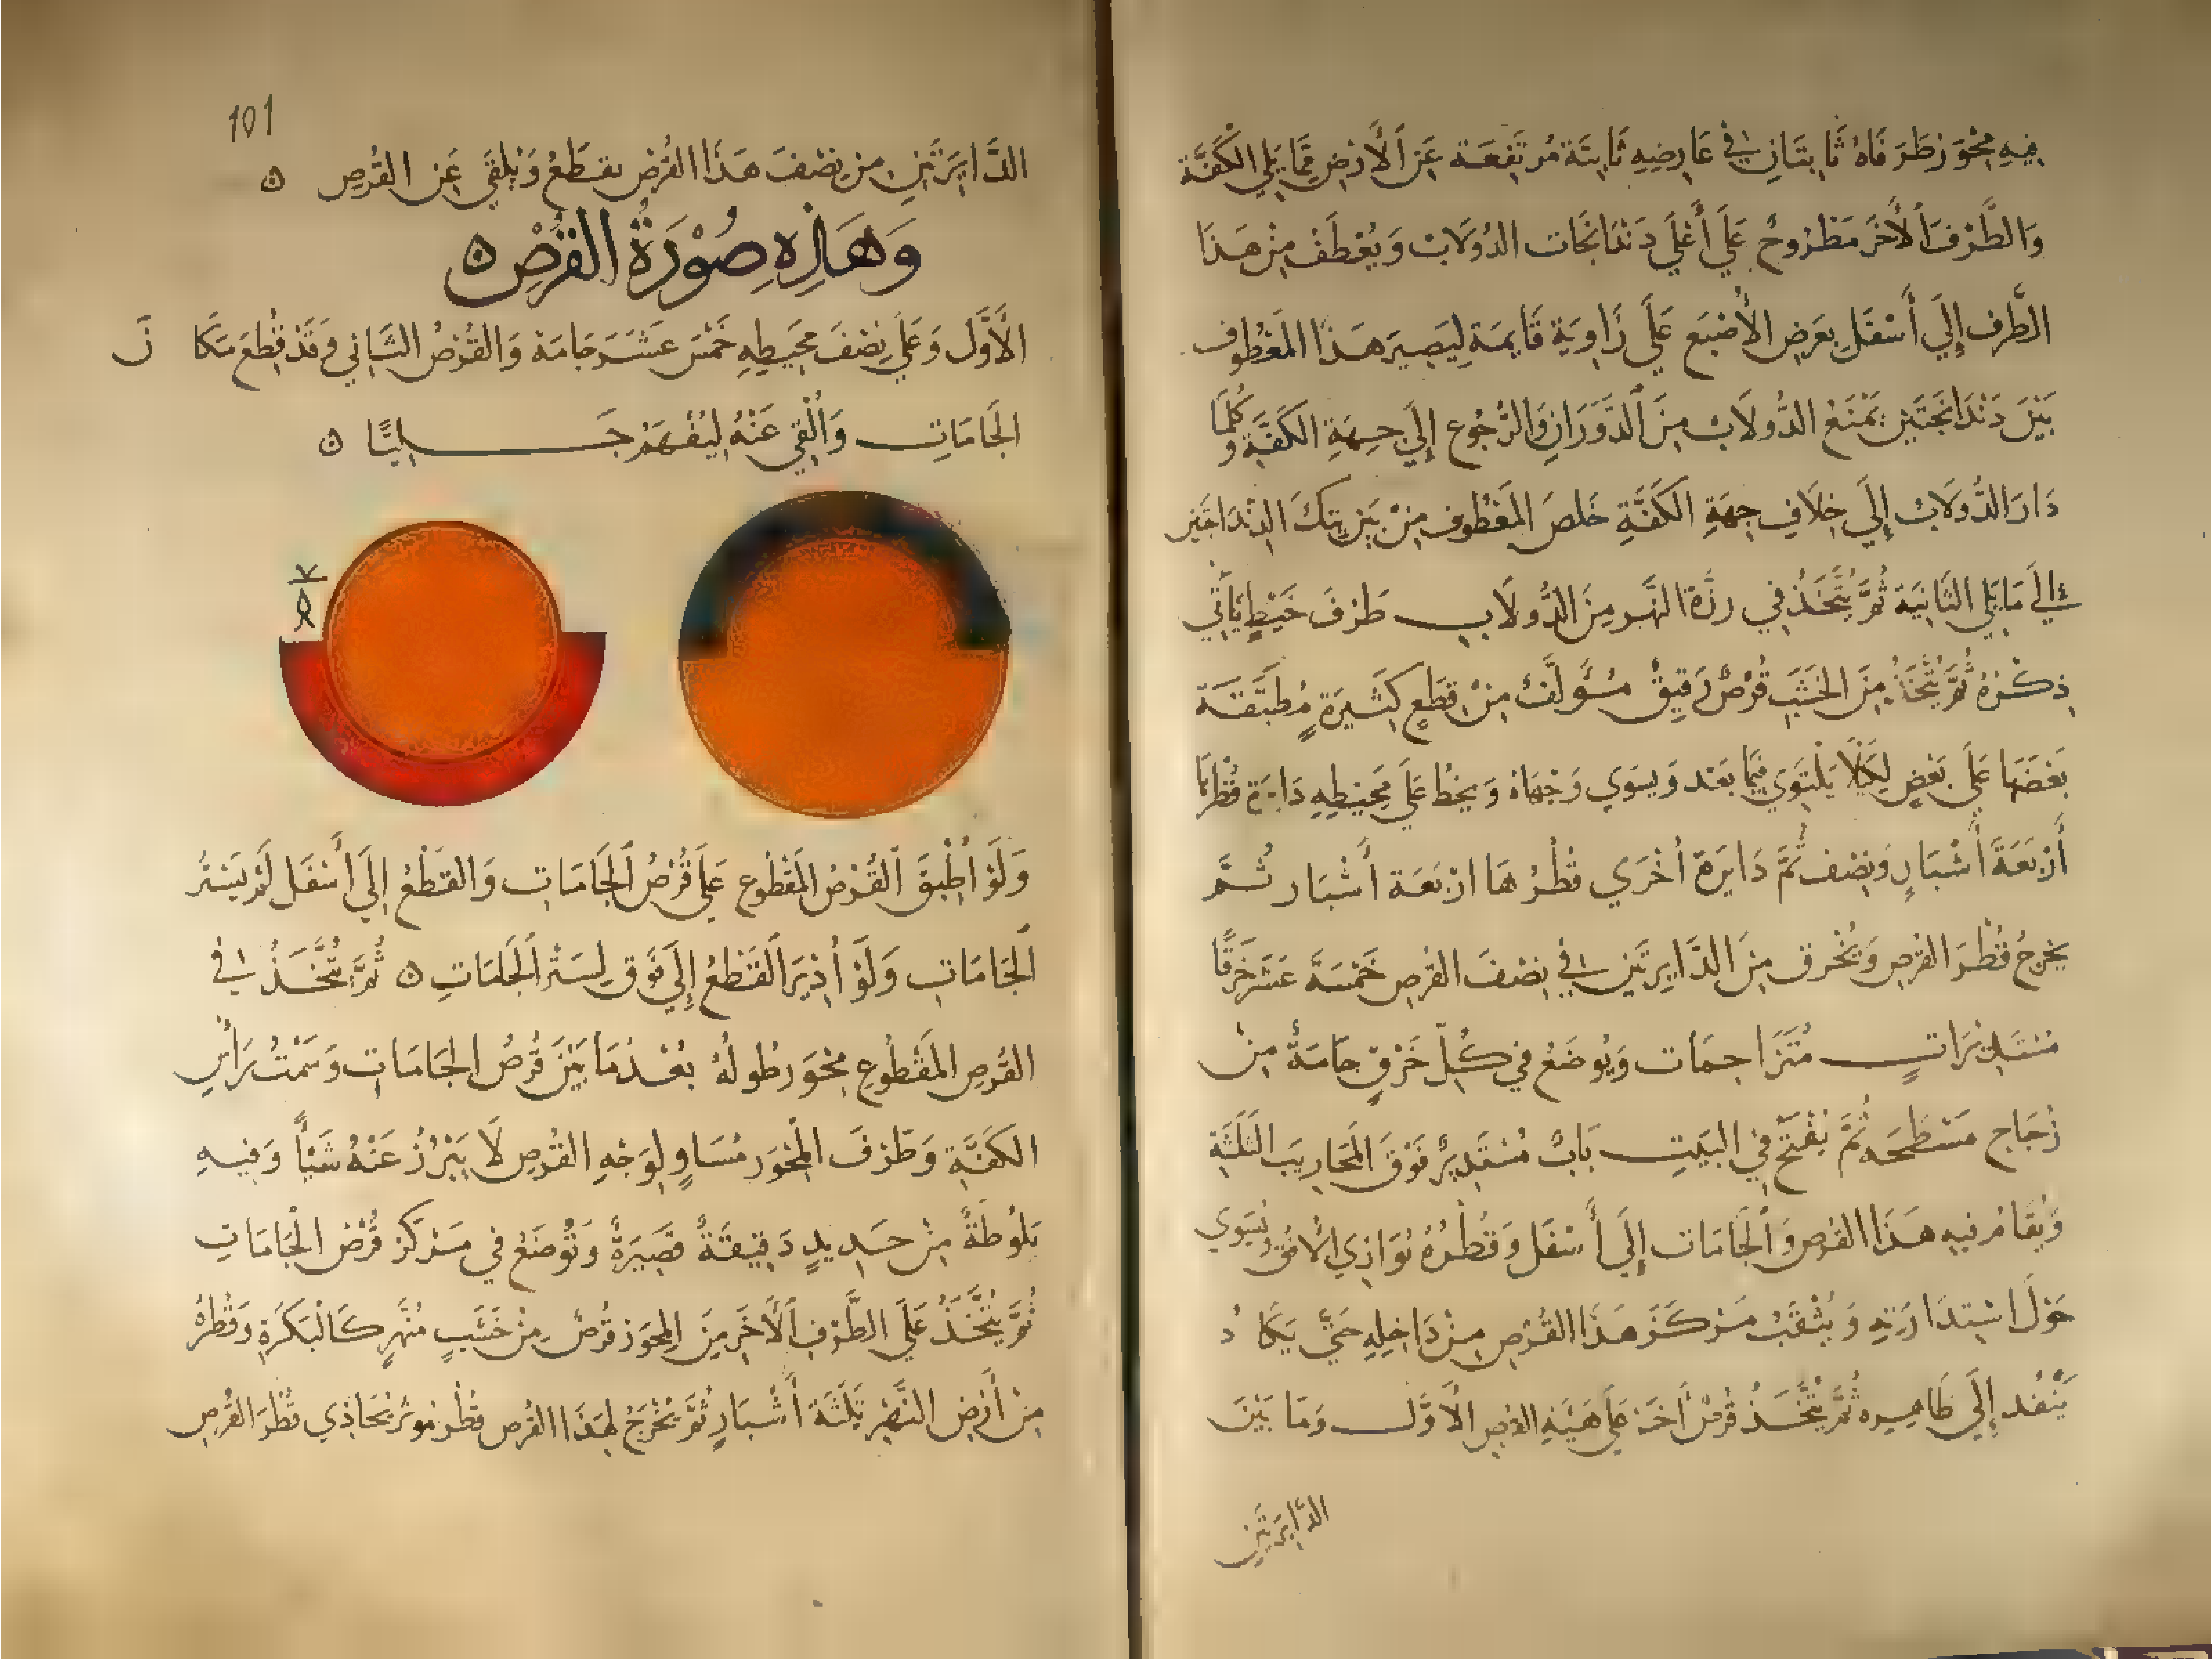 فِيهِ مِحْوَرْ طَرَفَاهُ ثَابِتَانِ فِي عَارِضِهِ ثَابِتَة مُرتَفِعَة عَنِ الْأَرْضِ مِمَّا يَلِي الكَفَّة
وَالطَّرْفَ الْأَخَر مَطْرُوحٌ عَلَى أَعْلَى دَنْدَانجَات الدُولَاب وَيُعْطَفْ مِنْ هَذَا
الطَّرف إِلَى أَسْفَلِ بِعَرضِ الأُصْبَع عَلَى زَاوِيَةٍ قَايِمَةٍ لِيَصِيرَ هَذَا المَعْطُوف
بَيْنَ دَنْدَانجَتَيْنِ يَمْنَعُ الدُّولَاب مِنَ الدَّوَرَانِ وَالرُّجُوع إِلَى جِهَةِ الكَفَّةِ وَكُلَّمَا
دَارَ الدُّولَابُ إِلَى خِلَافِ جِهَةِ الكَفَّةِ خَلصَ المَعْطُوف مِنْ بَيْنِ تِلكَ
إلَى مَا يَلِي الثَّانِيَة ثُمَّ يُتَّخَذُ فِي رزَّة النَّهر مِنَ الدُّولَابِ طَرْفَ خَيْطٍ يَأتِي
ذِكْرُهُ ثُمَّ يُتَّخَذُ مِنَ الخَشَبِ قُرْصٌ رَقِيقٌ مُؤَلَّفٌ مِنْ قِطَعٍ كَثِيرَةٍ مُطَبَّقَة
بَعْضَهَا عَلَى بَعْضٍ لِكَيْلَا يَلْتَوِي فِيمَا بَعْد وَيسَوِي وَجْهَاهُ وَيخُط عَلَى مُحِيطِهِ دَايرَة قُطْرُهَا
أَرْبَعَةَ أَشْبَارٍ وَنِصْف ثُمَّ دَايرَة أُخْرَي قُطْرُهَا ارْبَعَة أَشْبَار ثُمَّ
يخرِجُ قُطْرَ القُرصِ وَيُخْرق مِنَ الدَّايِرتَيْنِ فِي نِصْفَ القُرصِ خَمْسَةَ عَشَرَ خَرقًا
مُسْتَدِيرَاتٍ مُتَزَاحِمَات وَيُوضَعُ فِي كُلِّ خَرْقٍ جَامَةٌ مِنْ
زُجَاج مَسْطَحَه ثُمَّ يُفْتَحُ فِي البَيتِ بَابٌ مُسْتَدِيرٌ فَوْقَ المَحَارِيبَ الثَلَثَةِ
وَيُقَامُ فِيهِ هَذَا القُرص وَالجَامَات إِلَى أَسْفَل وَقُطْرُهُ يُوَازِي الأُفق وَيُسَوي
حَوْلَ اسْتِدَارَتِهِ وَيُثْقَبُ مَرْكَزَ هَذَا القُرْصِ مِنْ دَاخِلِهِ حَتَّى يَكَادُ
يَنْفُد إِلَى ظَاهِرِه ثُمَّ يُتَّخَذُ قُرْصٌ أَخَر عَلَى هَيْئَةِ القرص الأَوَّل وَمَا بَيْنَ
الدَّايرَتَيْنِ
101
الدَّايِرَتَيْنِ مِنْ نِصْفَ هَذَا القُرْصْ يقطَعُ وَيُلقَى عَنِ القُرصِ ه
وَهَذِه صُوْرَةُ القُرْصِ ه
الأَوَّل وَعَلَى نِصْفَ مُحيطِهِ خَمْسَ عَشَرَ جَامَة وَالقُرْصُ الثَّانِي وَقَدْ قُطِعَ مَكَا نَ
الجَامَاتِ وَأُلْقِي عَنْهُ لِيُفْهَمْ جَلِيًّا ه
وَلَوْ اُطْبِقَ القُرْصُ المَقْطُوع عَلَى قُرْصُ الجَامَاتِ وَالقَطْعُ إِلَى أَسْفَل لَمْ يَسْتُر
الجَامَاتِ وَلَوْ أُدْيِرَ القَطْعُ إِلَى فَوْق لِسَتْر الجَامَاتِ ه ثُمَّ يُتَّخَذُ فِي
القُرصِ المَقْطُوعِ مِحْوَر طُولُهُ بُعْدُ مَا بَيْنَ قُرصُ الجَامَاتِ وَسَمْتُ رَأسِ
الكَفَّةِ وَطَرْفَ المِحْوَر مُسَاوٍ لِوَجْهِ القُرْصِ لَا يَبْرُزُ عَنْهُ شَيْأً وَفِيهِ
بَلُوطَةٌ مِنْ حَدِيدٍ دَقِيقَةٌ قَصِيَرَةٌ وَتُوضَعُ فِي مَرْكَزِ قُرْصُ الجَامَاتِ
ثُمَّ يُتَّخَذُ عَلَى الطَّرْفِ الأَخَرِ مِنَ المِحوَرْ قُرْصٌ مِنْ خَشَبٍ مُنَهَّرٍ كَالْبَكَرَةِ وَقُطْرُهُ
مِنْ أَرْضِ النَّهْرِ ثَلَثَة أَشْبَارٍ ثُمَّ يُخْرَجُ لِهَذَا القُرص قُطْر يُحَاذِي قُطْرَ القُرصِ